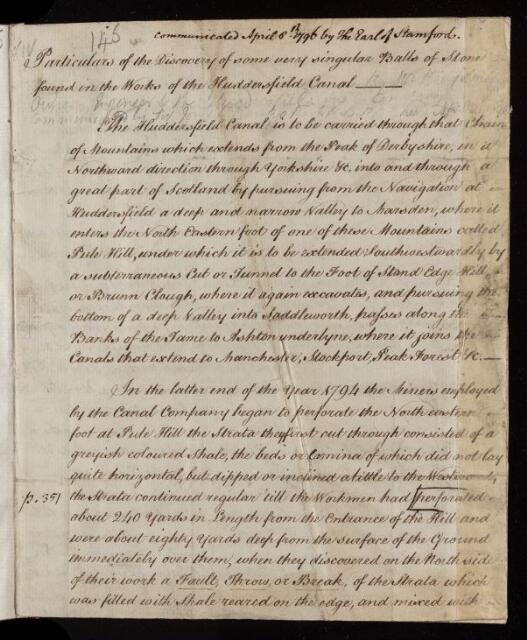 communicated April 8th 1796 by The Earl of Stamford.
146
Particulars of the Discovery of some very singular Balls of Stone
found in the Works of the Huddersfield Canal
The Huddersfield Canal is to be carried through that Chain
of Mountains which extends from the Peak of Derbyshire, in a
Northward direction through Yorkshire &c. into and through a
great part of Scotland by pursuing from the Navigation at
Huddersfield a deep and narrow Valley to Marsden, where it
enters the North Eastern foot of one of these Mountains called
Pule Hill, under which it is to be extended Southwestwardly by
a subterraneous Cut or Tunnel to the Foot of Stand Edge Hill,
or Brunn Clough, where it again excavates, and pursuing the
bottom of a deep Valley into Saddleworth, passes along the
Banks of the Tame to Ashton underlyne, where it joins the
Canals that extend to Manchester, Stockport, Peak Forest &c.
In the latter end of the Year 1794 the Miners employed
by the Canal Company began to perforate the North eastern
foot at Pule Hill the Strata they first cut through consisted of a
greyish coloured Shale, the beds or Lamina of which did not lay
quite horizontal, but dipped or inclined a little to the Westward,
p. 351
the Strata continued regular till the Workmen had perforated
about 240 Yards in Length from the Entrance of the Hill and
were about eighty Yards deep from the surface of the Ground
immediately over them, when they discovered on the North side
of their work a Fault, Throw, or Break, of the Strata which
was filled with Shale reared on the edge, and mixed with